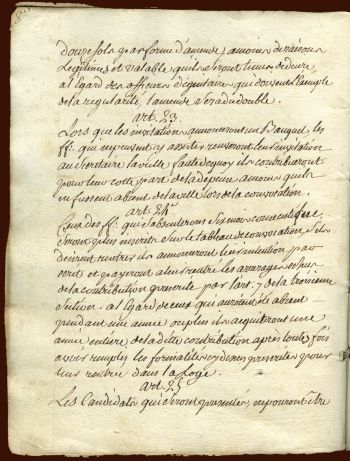 douze sols par forme d'amende, amoins de raisons
Legitimes et valable qu'ils seront tenus de deduire,
a l'égard des officiers dignitaire qui doivent l'exemple
de la regularité l'amende sera du double.
art. 23.
Lors que les invitations annonceront un Banquet les
ff. qui ne peuvent y assister renverront l'invitation
au secretaire la veille, faute de quoy ils contribueront
pour leur cotte part de la depense amoins qu'ils
ne fussent absent de la ville lors de la convocation.
art. 24
Ceux des ff. qui s'absenteront six mois consecutif ne
seront plus inscrits sur le tableau de convocation, s'ils
desirent rentrer ils annonceront leur intention par
ecrit et payeront a leur rentrée les arrerages echus
de la contribution prescrite par l'art. 7 de la troisieme
section. a l'égard de ceux qui auront été absent
pendant une année ou plus ils acquitteront une
année entiere de la dette contribution après toute fois
avoir remplis les formalités cy dessus prescrites pour
leur rentrée dans la Loge.
art. 25
Les Candidats qui seront presentés, ne pouront être